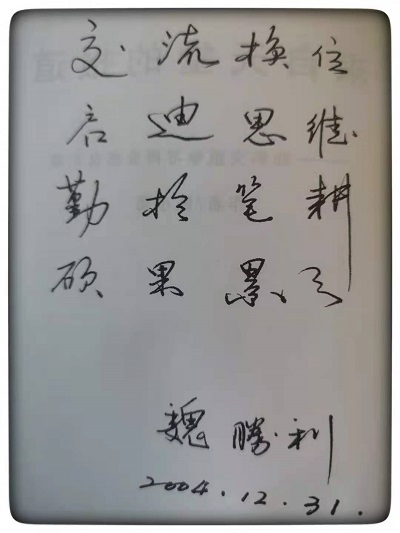 交流换位
启迪思维
勤于笔耕
硕果累累
魏勝利
2004.12.31.